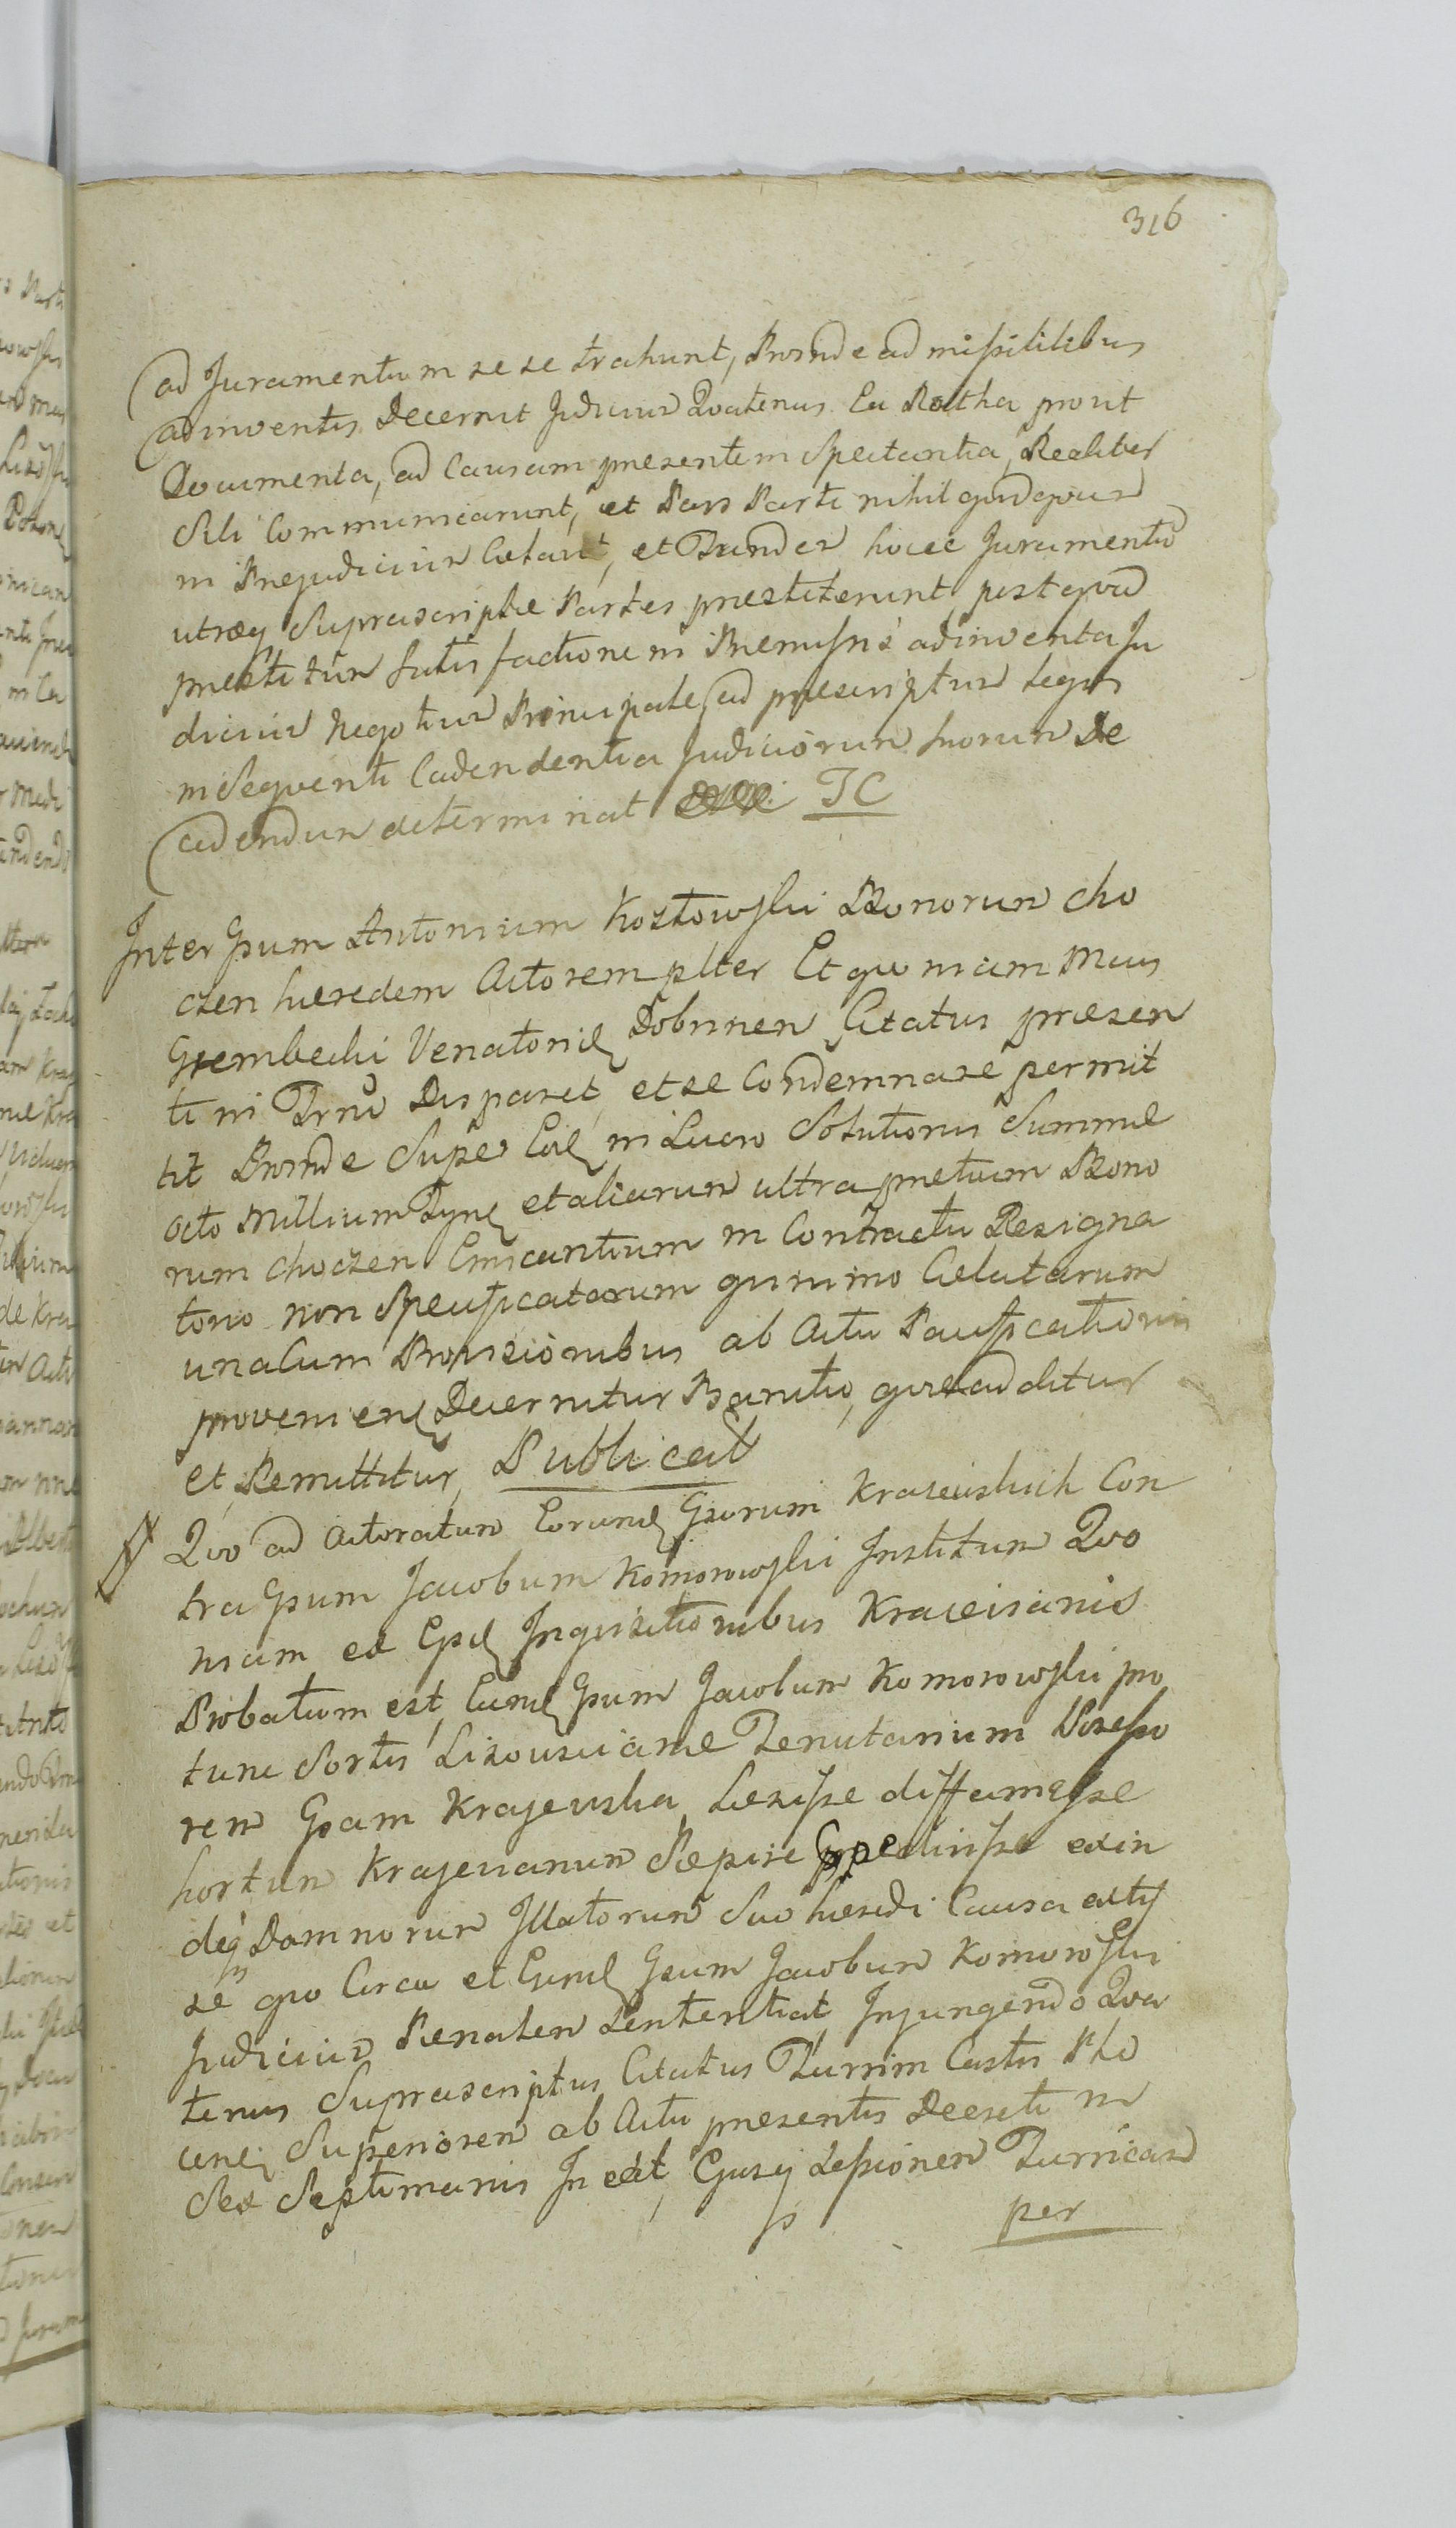 316
ad Juramentum sese trahunt, Proinde admissibilibus
adinventis Decernit Judicium Qvatenus Ea Rotha prout
Documenta, ad Causam presentem Spectantia, Realiter
Sibi Communicarunt, et Pars Parti nihil quidqvam
in Prejudicium Celavit, et Tandem hocce Juramento
utræq Suprascriptæ Partes prestiterunt, post qvod
prestitum Satisfactione in Premissis adinventa Ju
dicium Negotium Principale, ad præscriptum Legis
in Seqventi Cadendentia Judiciorum suorum De
cidendum determinat TC
Inter Gsum Antonium Kozłowski Bonorum Cho
czen hæredem Actorem plter Et qvoniam Mcus
Grembecki Venatoriæ Dobrinen Citatus præsen
ti in Trno Disparet, et se Condemnare permit
tit Proinde Super Eoq in Lucro Solutionis Summæ
Octo Millium et aliarum ultra pretium Bono
rum Choczen Emicantium in Contractu Resigna
torio non Specificatarum quinimo Celatarum
una Cum Provisionibus ab Actu Pacificationis
provenien Decernitur Banitio, qvæ additur
et Remittitur, Publicat
Qvo ad Actoratum Eorund Gsorum Krajewskich Con
tra Gsum Jacobum Komorowski Institutum Qvo
niam ex Gsd Inqvisitionibus Kraievianis
Probatum est, Eund Gsum Jacobum Komorowski pro
tunc Sortis Lisowsciane Tenutarium Uxo
rem Gsam Krajewska, Læsisse diffamasse
hortum Krajevianum Sæpire exin
deq Damnorum Illatorum Suo hæredi Causa exti
se qvo Circa et Eund Gsum Jacobum Komorowski
Judicium Pænalem Sententiat, Injungendo Qva
tenus Suprascriptus Citatus Turrim Castri Plo
cen Superiorem ab Actu presentis Decreti in
Sex Septimanis In eat, Ejusq Sessionem Turricam
per